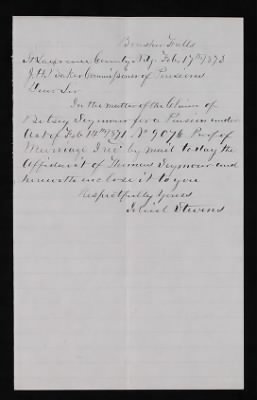 Brasher Falls
St Lawrence County N.Y. Feb. 17th 1873
J.H. Baker Commissioner of Pensions
Dear Sir
In the matter of the Claim of
Betsey Seymour for a Pension under
Act of Feb 14th 1871 No 9076 Proof of
Marriage I rec by mail to day the
Affidavit of Thomas Seymour and
herewith enclose it to you
Respectfully Yours
Stevens